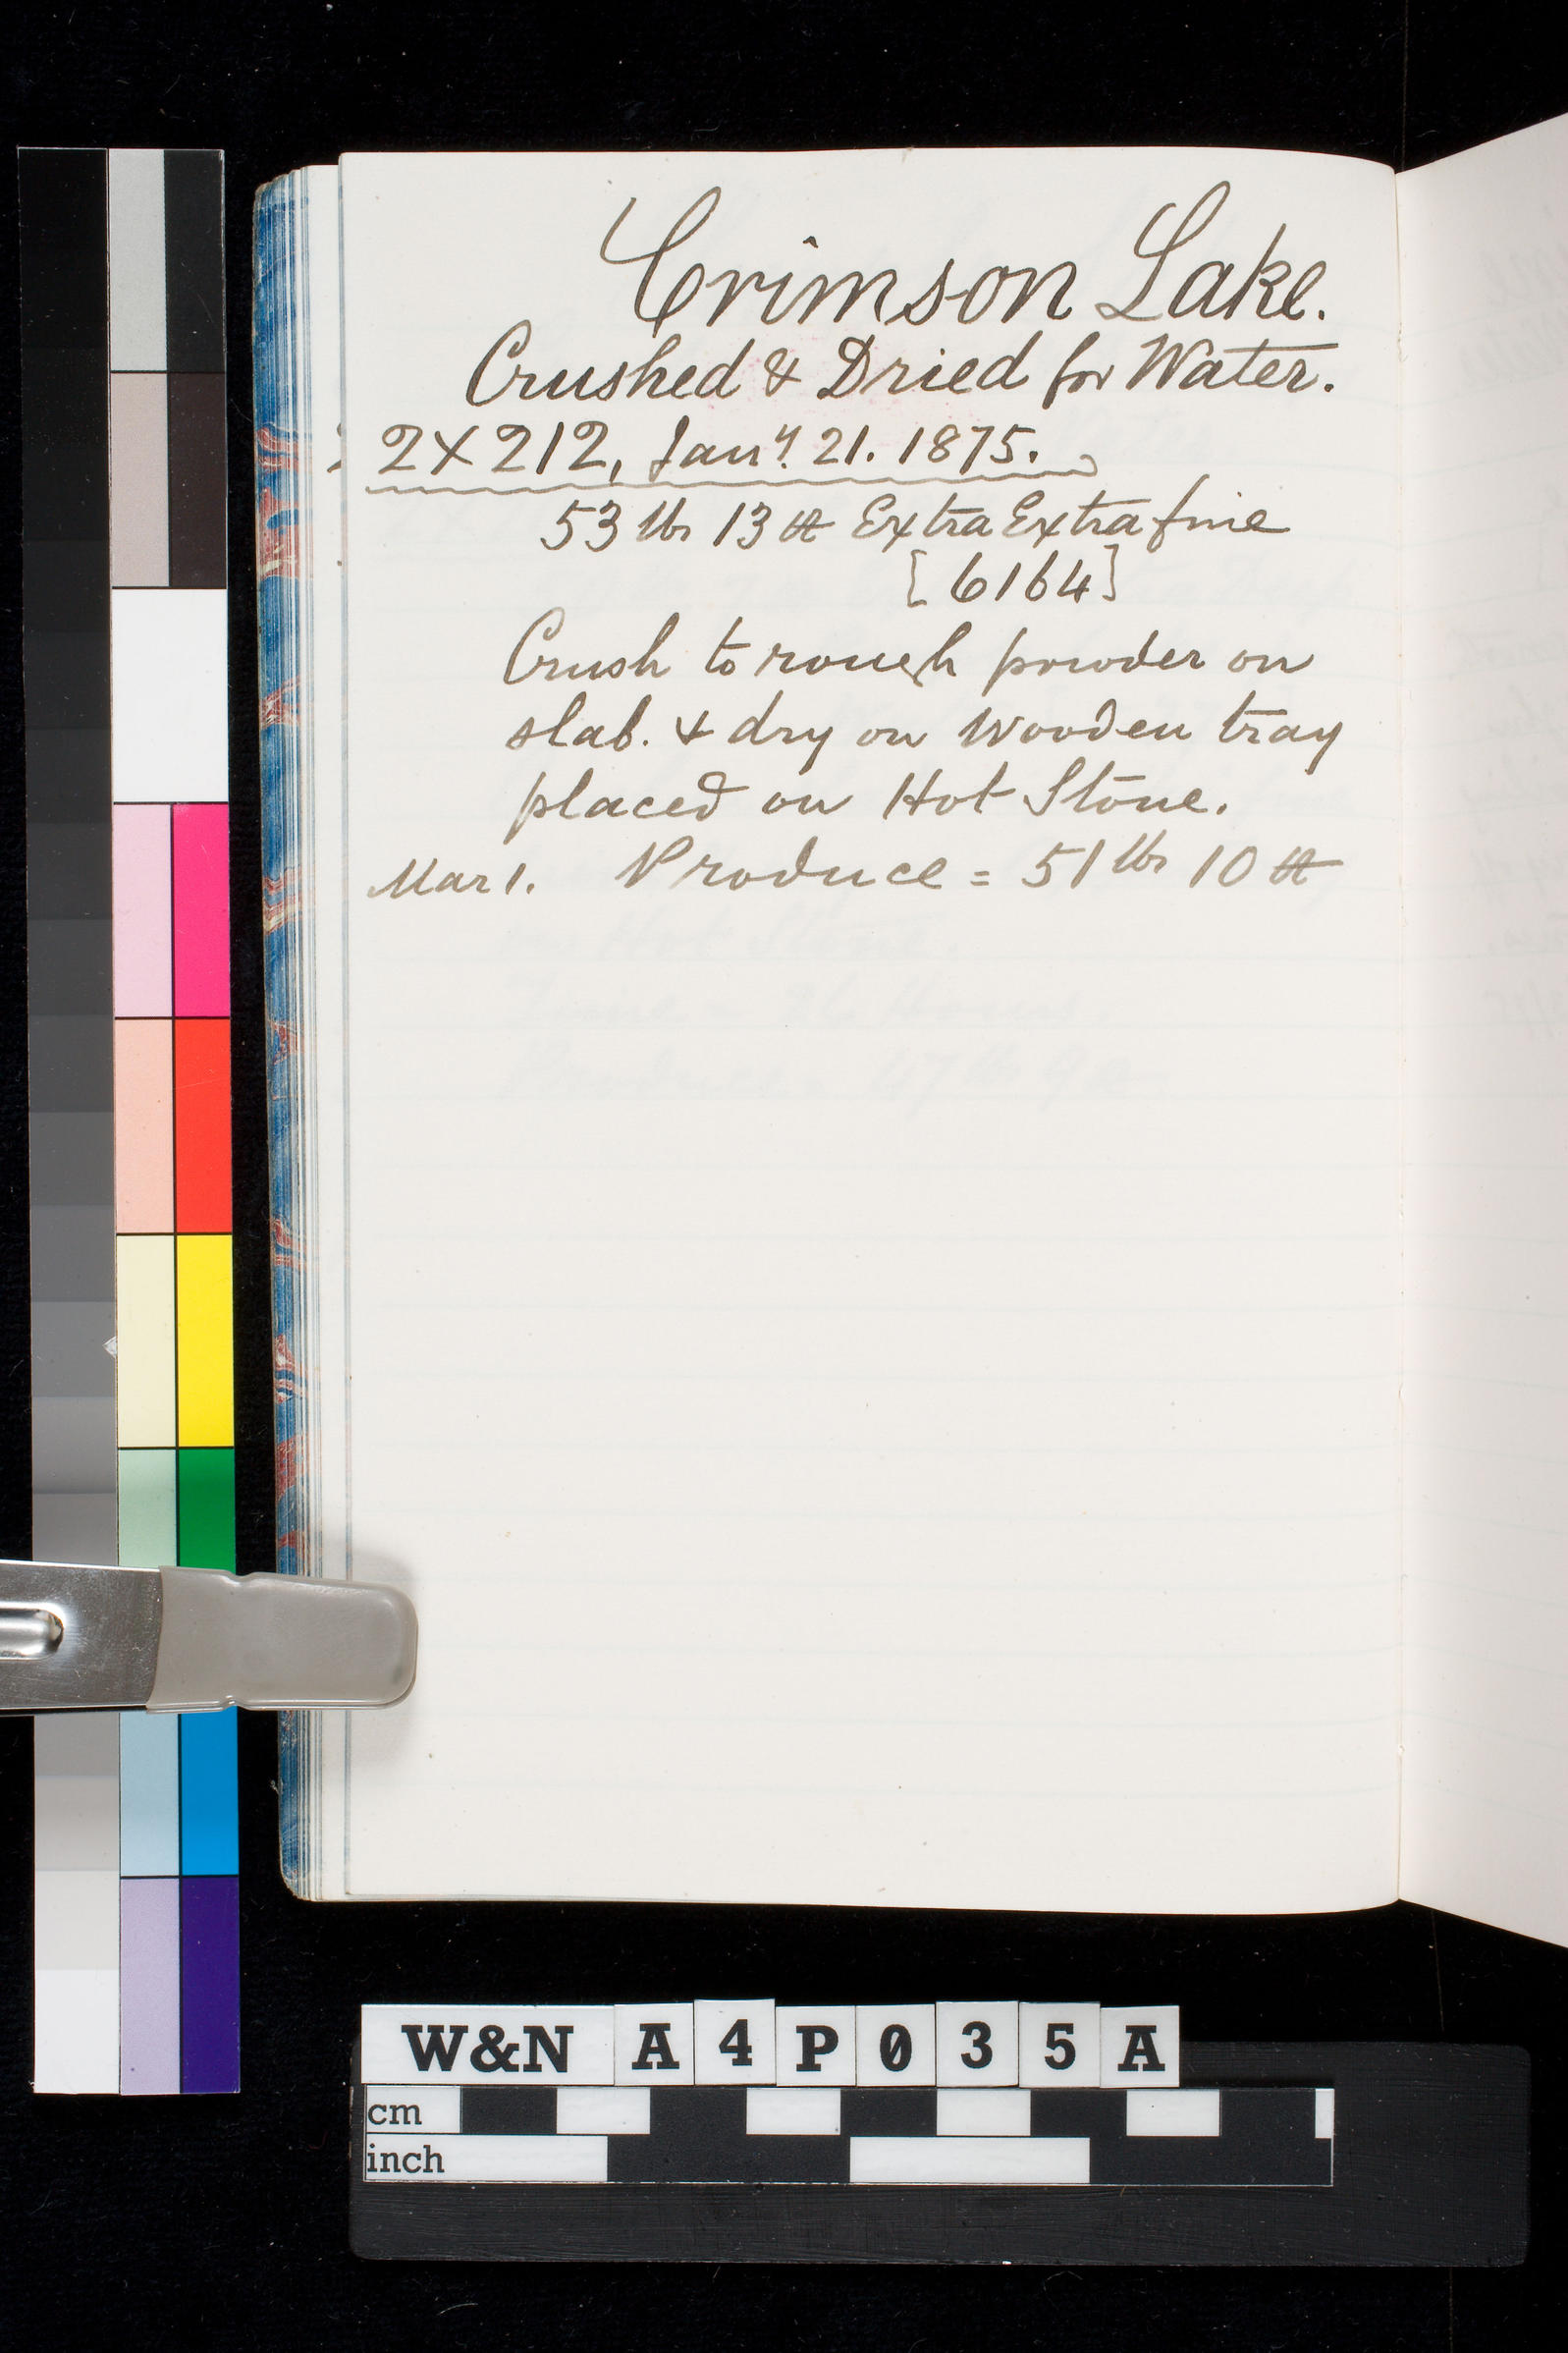 Crimson Lake.
Crushed & Dried for Water.
2X212, Jany. 21. 1875.
53 lbs 13 oz Extra Extra fine
[6164]
Crush to rough powder on
slab. & dry on Wooden tray
placed on Hot Stone.
Mar 1. Produce = 51 lbs 10 oz
W&N A4P035A
cm
inch